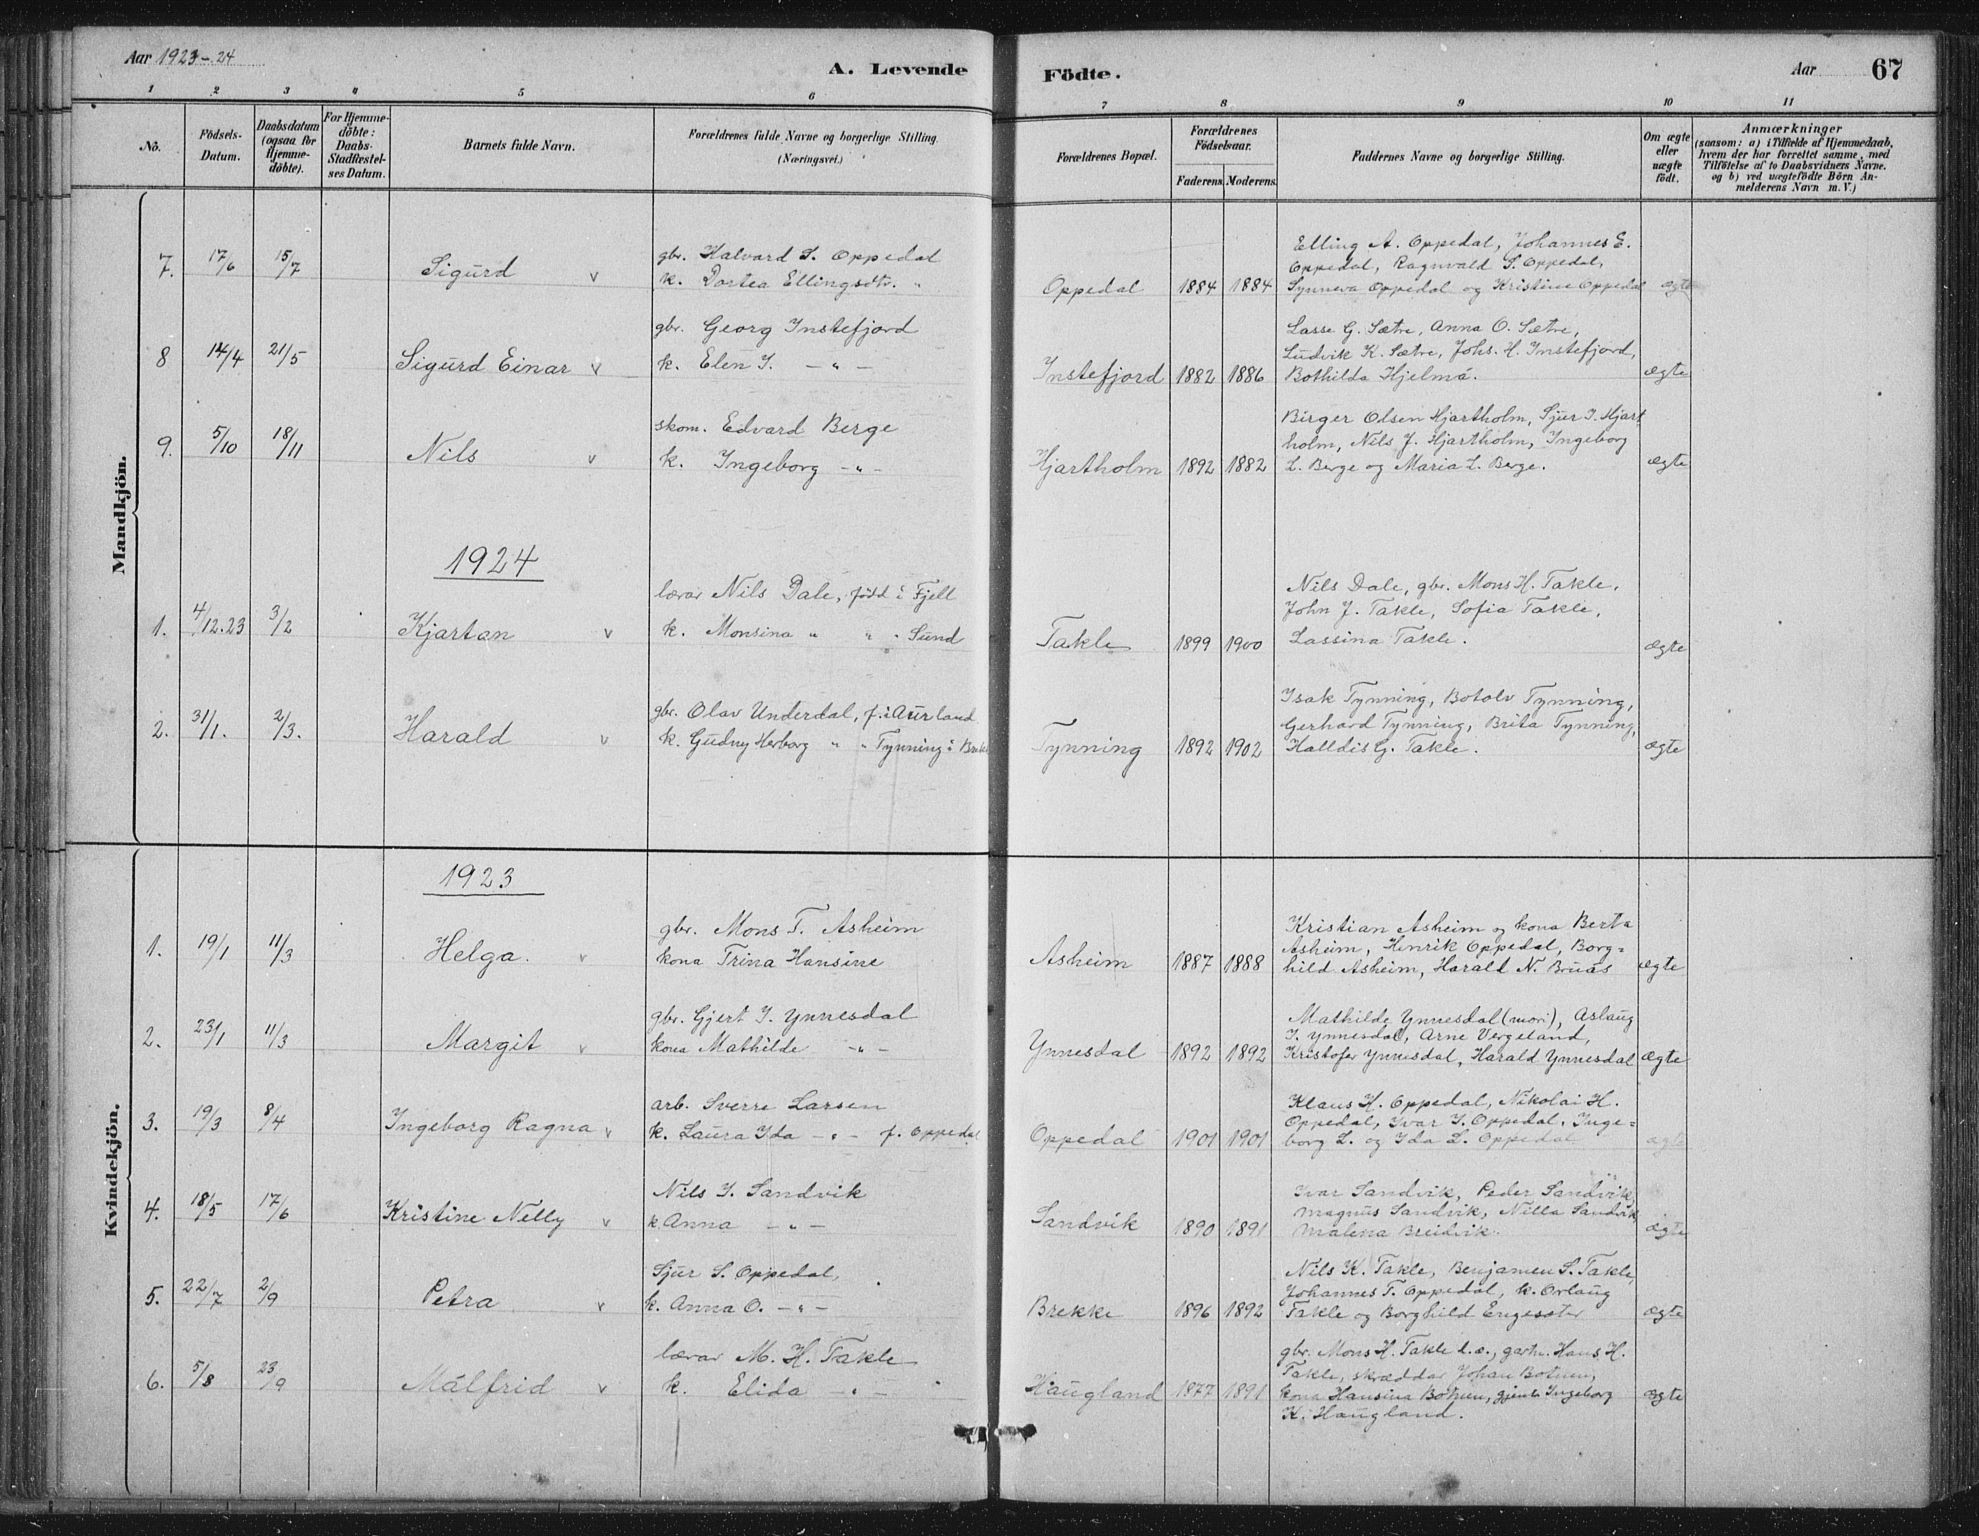 Aar 1923-24
A. Levende Födte.
Aar 67
1 2 3 4 5 6 7 8 9 10 11
No.
Födsels-Datum.
Daabsdatum (ogsaa for Hjemme-döbte).
For Hjemme-döbte: Daabs-Stadfæstel-ses Datum.
Barnets fulde Navn.
Forældrenes fulde Navne og borgerlige Stilling.
(Næringsvei.)
Forældrenes Bopæl.
Forældrenes Födselsaar.
Faderens. Moderens.
Faddernes Navne og borgerlige Stilling.
Om ægte eller uægte födt.
Anmærkninger
(saasom: a) i Tilfælde af Hjemmedaab,
hvem der har forrettet samme, med
Tilföielse af to Daabsvidners Navne.
og b) ved uægtefödte Börn An-
melderens Navn m. V.)
Mandkjön.
7. 17/6 15/7 Sigurd v
gbr. Halvard S. Oppedal
k. Dortea Ellingsdtr. "
Oppedal 1884 1884
Elling A. Oppedal, Johannes E.
Oppedal, Ragnvald S. Oppedal,
Synneva Oppedal og Kristine Oppedal
ægte
8 14/4 21/5 Sigurd Einar v
gbr. Georg Instefjord
k. Elen I. - " -
Instefjord 1882 1886
Lasse G. Sætre, Anna O. Sætre,
Ludvik K. Sætre, Johs. H. Instefjord,
Bothilda Hjelmå.
ægte
9. 5/10 18/11 Nils v
skom. Edvard Berge
k. Ingeborg - " -
Hjartholm 1892 1882
Birger Olsen Hjartholm, Sjur I. Hjart
holm, Nils J. Hjartholm, Ingeborg
L. Berge og Maria L. Berge.
ægte
1924
1. 4/12.23 3/2 Kjartan v
lærar Nils Dale, född i Fjell
k. Monsina " " " Sund
Takle 1899 1900
Nils Dale, gbr. Mons H. Takle,
John J. Takle, Sofia Takle,
Lassina Takle.
ægte
2. 31/1. 2/3. Harald v
gbr. Olav Underdal, f. i Aurland
k. Gudny Herborg " " Tynning i
Tynning 1892 1902
Isak Tynning, Botolv Tynning,
Gerhard Tynning, Brita Tynning,
Halldis G. Takle.
ægte
Kvindekjön.
1923
1. 19/1 11/3 Helga. v
gbr. Mons T. Asheim
kona Trina Hansine
Asheim 1887 1888
Kristian Asheim og kona Berta
Asheim, Henrik Oppedal, Borg=
hild Asheim, Harald N. Bruås
ægte
2. 23/1 11/3 Margit v
gbr. Gjert I. Ynnesdal
kona Mathilde - " -
Ynnesdal 1892 1892
Mathilde Ynnesdal (mori), Aslaug
I. Ynnesdal, Arne Vergeland,
Kristofer Ynnesdal, Harald Ynnesdal
ægte
3. 19/3 8/4 Ingeborg Ragna v
arb. Sverre Larsen
k. Laura Ida - " - f. Oppedal
Oppedal 1901 1901
Klaus H. Oppedal, Nikolai H.
Oppedal, Ivar I. Oppedal, Inge=
borg L. og Ida L. Oppedal
ægte
4. 18/5 17/6 Kristine Nelly v
Nils I. Sandvik
k Anna - " -
Sandvik 1890 1891
Ivar Sandvik, Peder Sandvik,
Magnus Sandvik, Nilla Sandvik
Malena Breidvik.
ægte
5. 22/7 2/9 Petra v
Sjur S. Oppedal,
k. Anna O. - " -
Brekke 1896 1892
Nils K. Takle, Benjamen S. Takle,
Johannes T. Oppedal, k. Orlaug
Takle og Borghild Engesæter
ægte
6. 5/8 23/9 Målfrid v
lærar M. H. Takle
k. Elida " -
Haugland 1877 1891
gbr. Mons H. Takle d.æ., gartn. Hans H.
Takle, skræddar Johan Botnen,
kona Hansina Botnen, gjenta Ingeborg
K. Haugland.
ægte